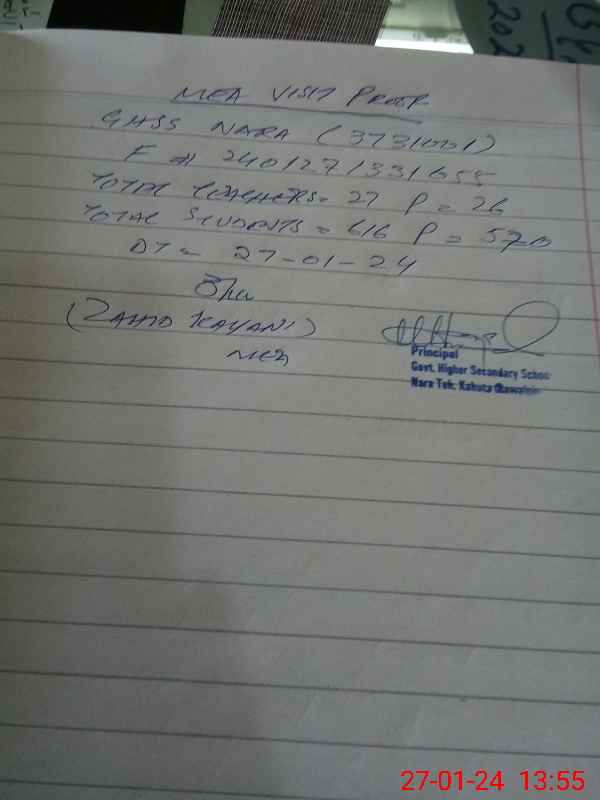 MEA VISIT PROOF
GHSS NARA (37310001)
F # 2401271331655
TOTAL TEACHERS= 27 P = 26
TOTAL STUDENTS = 616 P = 570
DT = 27-01-24
(ZAHID KAYANI)
MEA
Principal
Govt. Higher Secondary School
Nara Teh. Kahuta Rawalpindi
27-01-24 13:55